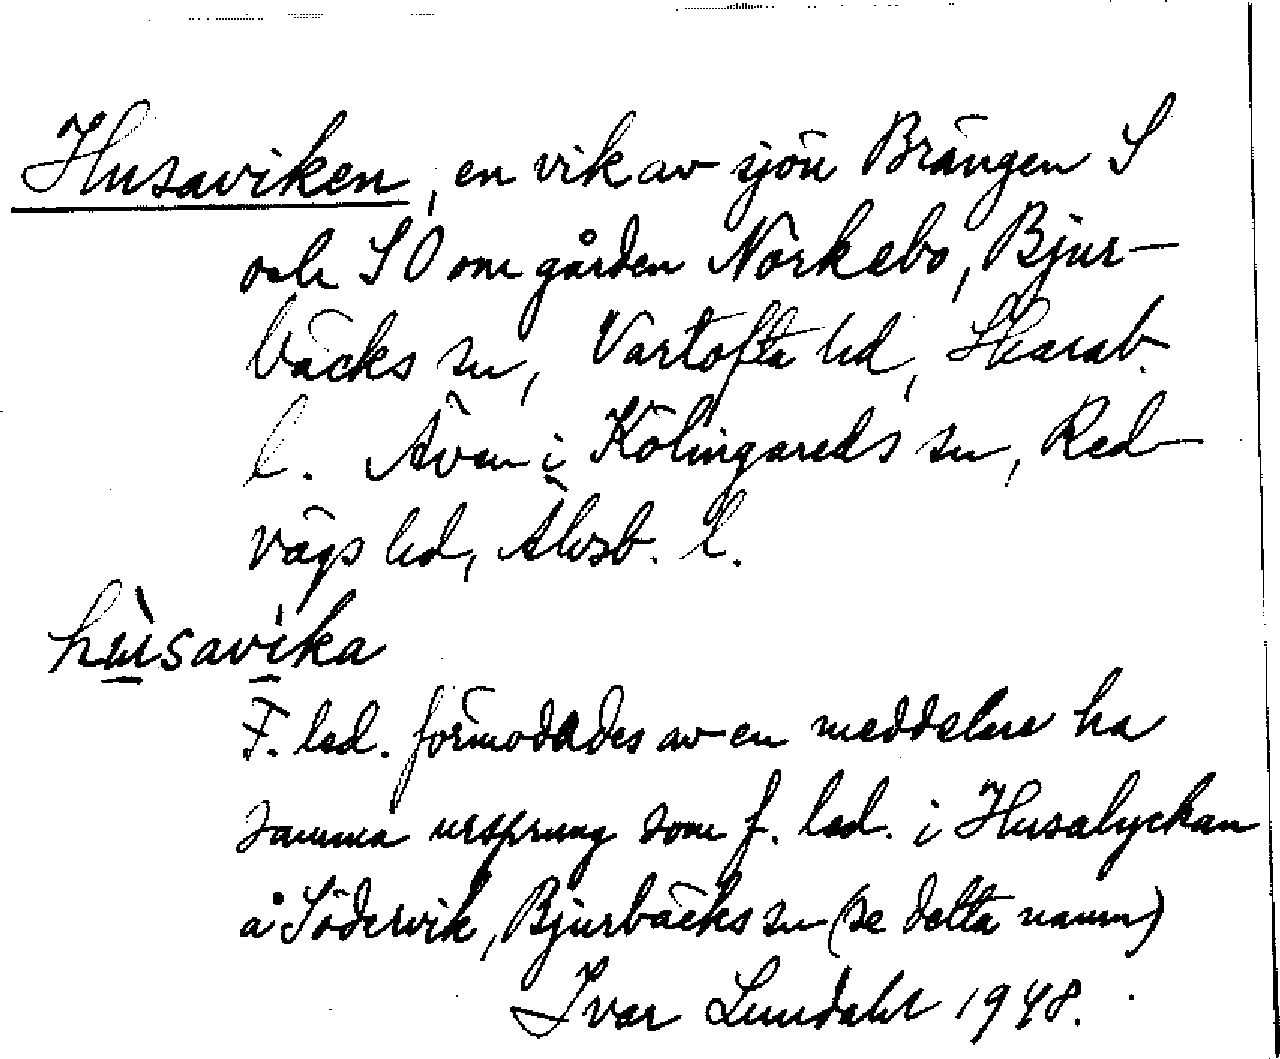 Husaviken, en vik av sjön Brängen S
och SO om gården Norkebo, Bjur-
bäcks sn, Vartofta hd, Skarab.
l. Även i Kölingareds sn, Red-
vägs hd, Älvsb. l.
hùsavíka
F. led. förmodades av en meddelare ha
samma ursprung som f. led. i Husalyckan
å Södervik, Bjurbäcks sn (se detta namn)
Ivar Lundahl 1948.